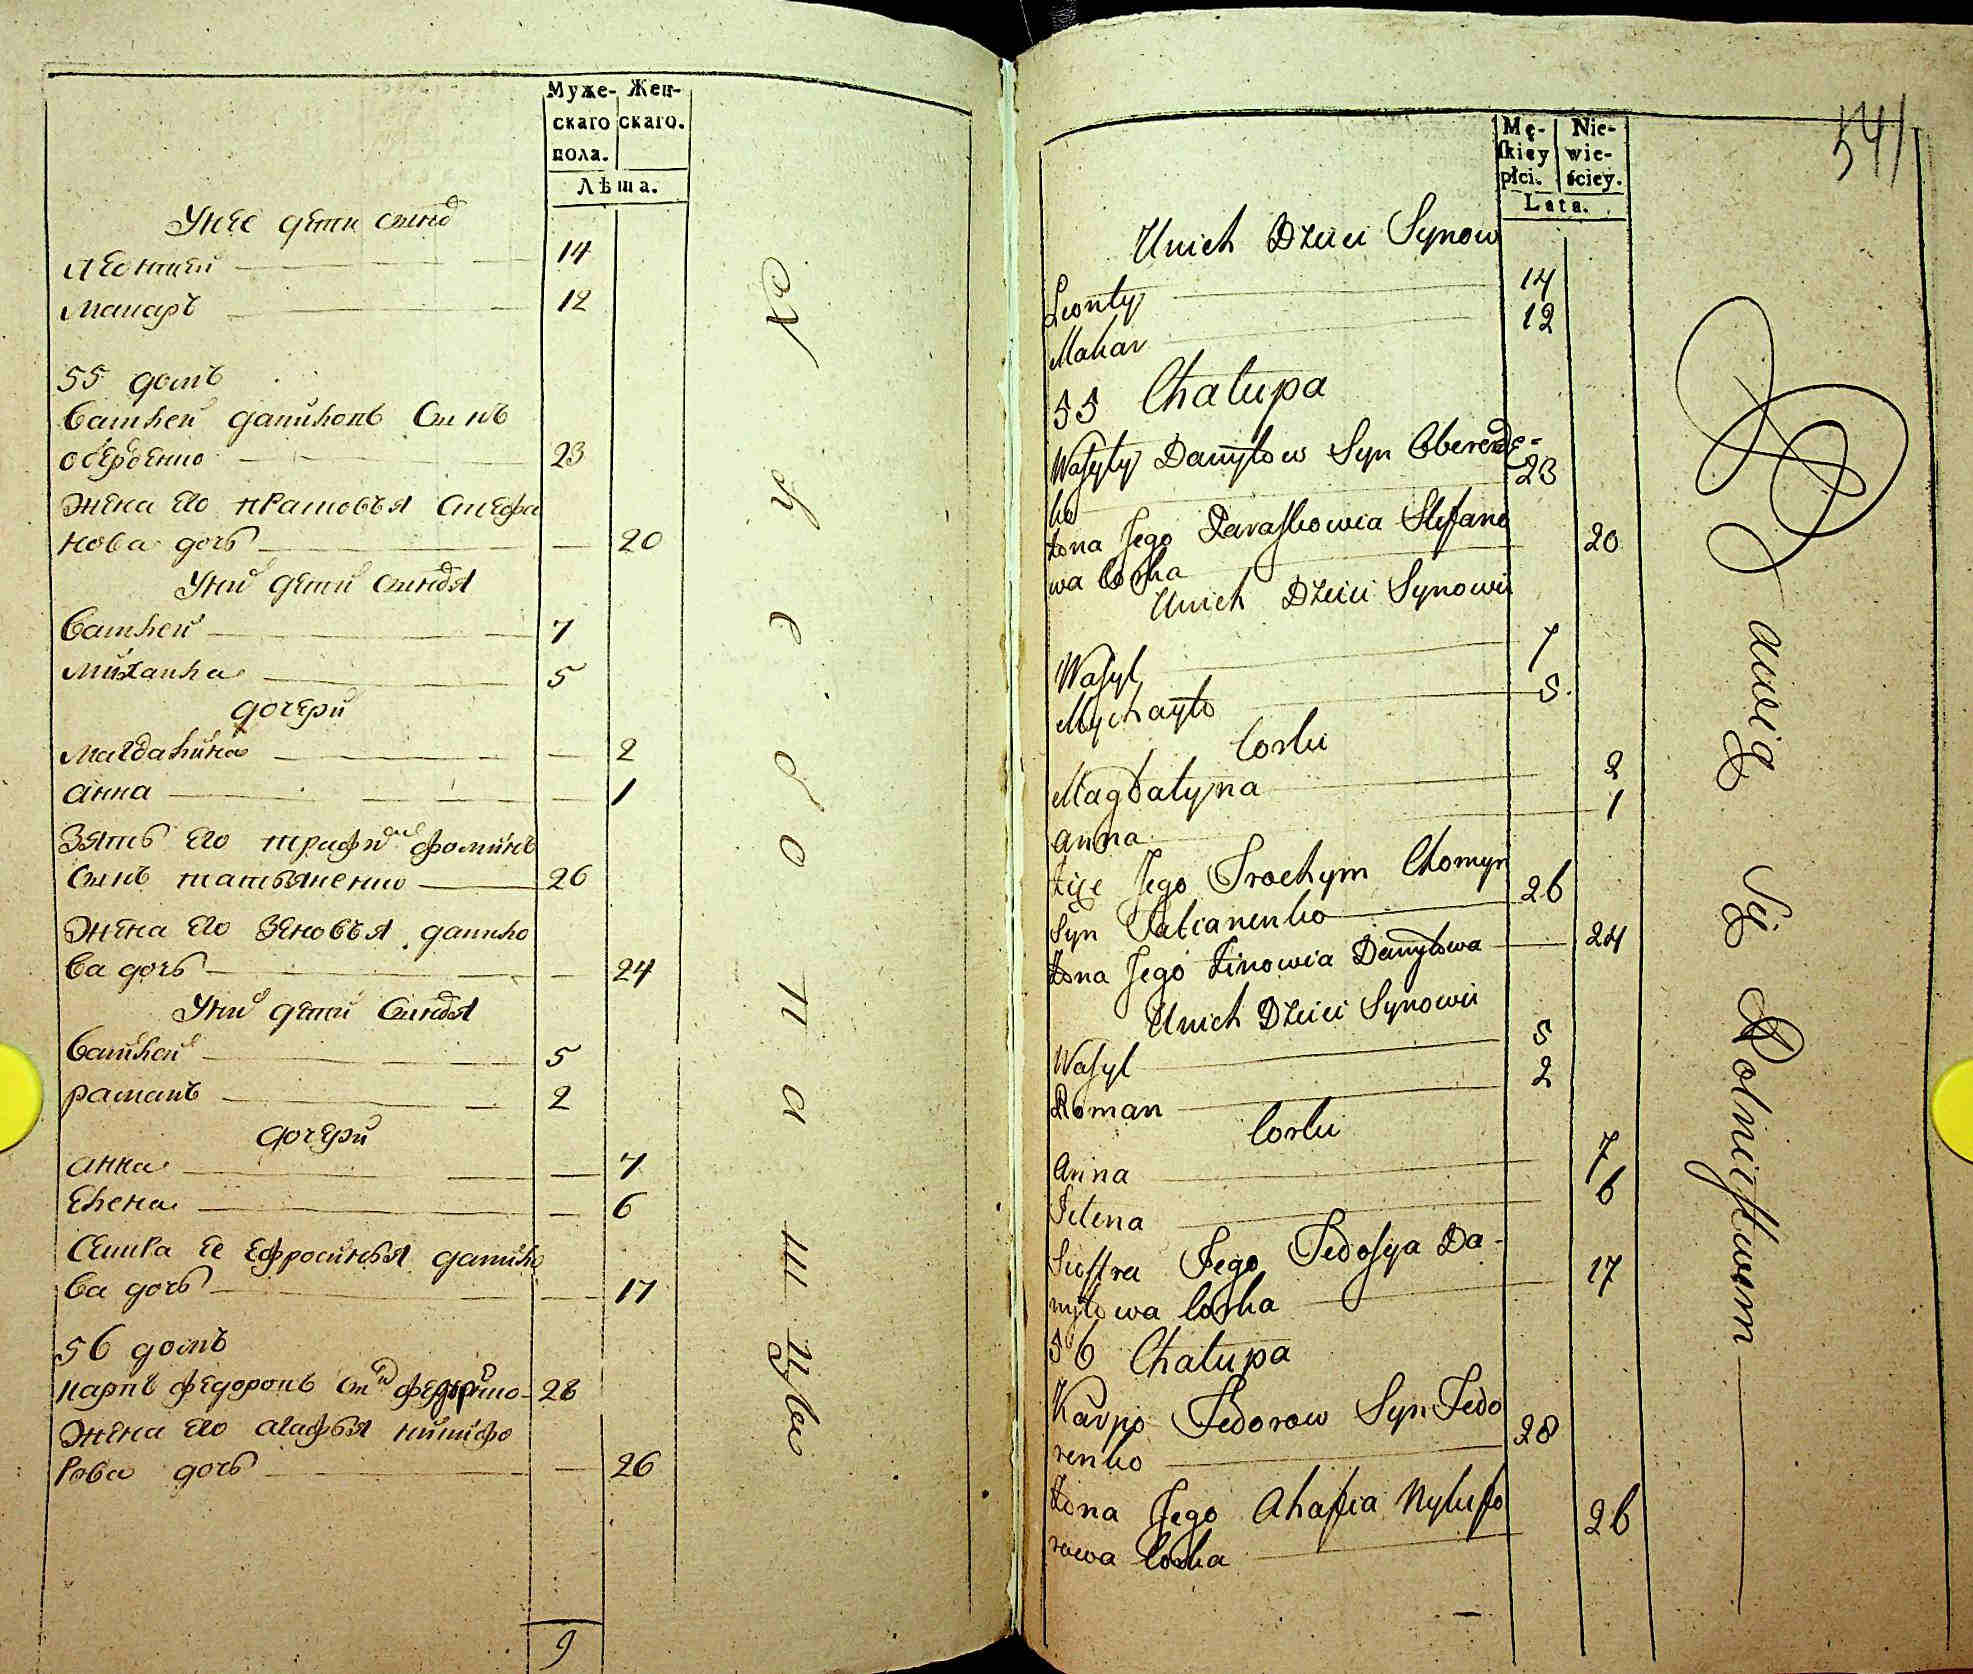 Муже- Жен-
скаго скаго.
пола.
Лѣта.
Унее дети сынд
Леонтий 14
Макаръ 12
55 домъ
Василей даниловъ Сынъ
оберденко 23
жена его прасковья Стефа
нова дочь 20
Уни дети Сындя
Василей 7
Михаила 5
дочери
Магдалина 2
анна 1
Зять его трафи фоминъ
Сынъ татьяненко 26
жена его Зеновья данило
ва дочь 24
Уни дети Сындя
Василей 5
раманъ 2
дочери
анна 7
Елена 6
Сестра ее Ефросинья данило
ва дочь 17
56 домъ
карпъ федоровъ сын федорко 28
жена его агафья никифо
рова дочь 26
9
хлебопашцы
541
Mę- Nie-
skiey wie-
płci. ściey.
Lata.
Unich Dzieci Synow
Leonty 14
Mahar 12
55 Chałupa
Wasyly Danyłow Syn Oberede-
ko 23
Żona Jego Paraskowia Stefano
wa Corka 20
Unich Dzieci Synowie
Wasyl 7
Mychayło 5.
Corki
Magdałyna 2
anna 1
Zięć Jego Trochym Chomyn
Syn Tatianenko 26
Żona Jego Zinowia Danyłowa 24
Unich Dzieci Synowie
Wasyl 5
Roman 2
Corki
Anna 7
Jelena 6
Siostra Jego Fedosya Da-
nyłowa Corka 17
56 Chałupa
Karpo Fedorow Syn Fedo
renko 28
Żona Jego Ahafia Nykifo
rowa Corka 26
Bawią Się Rolnictwem